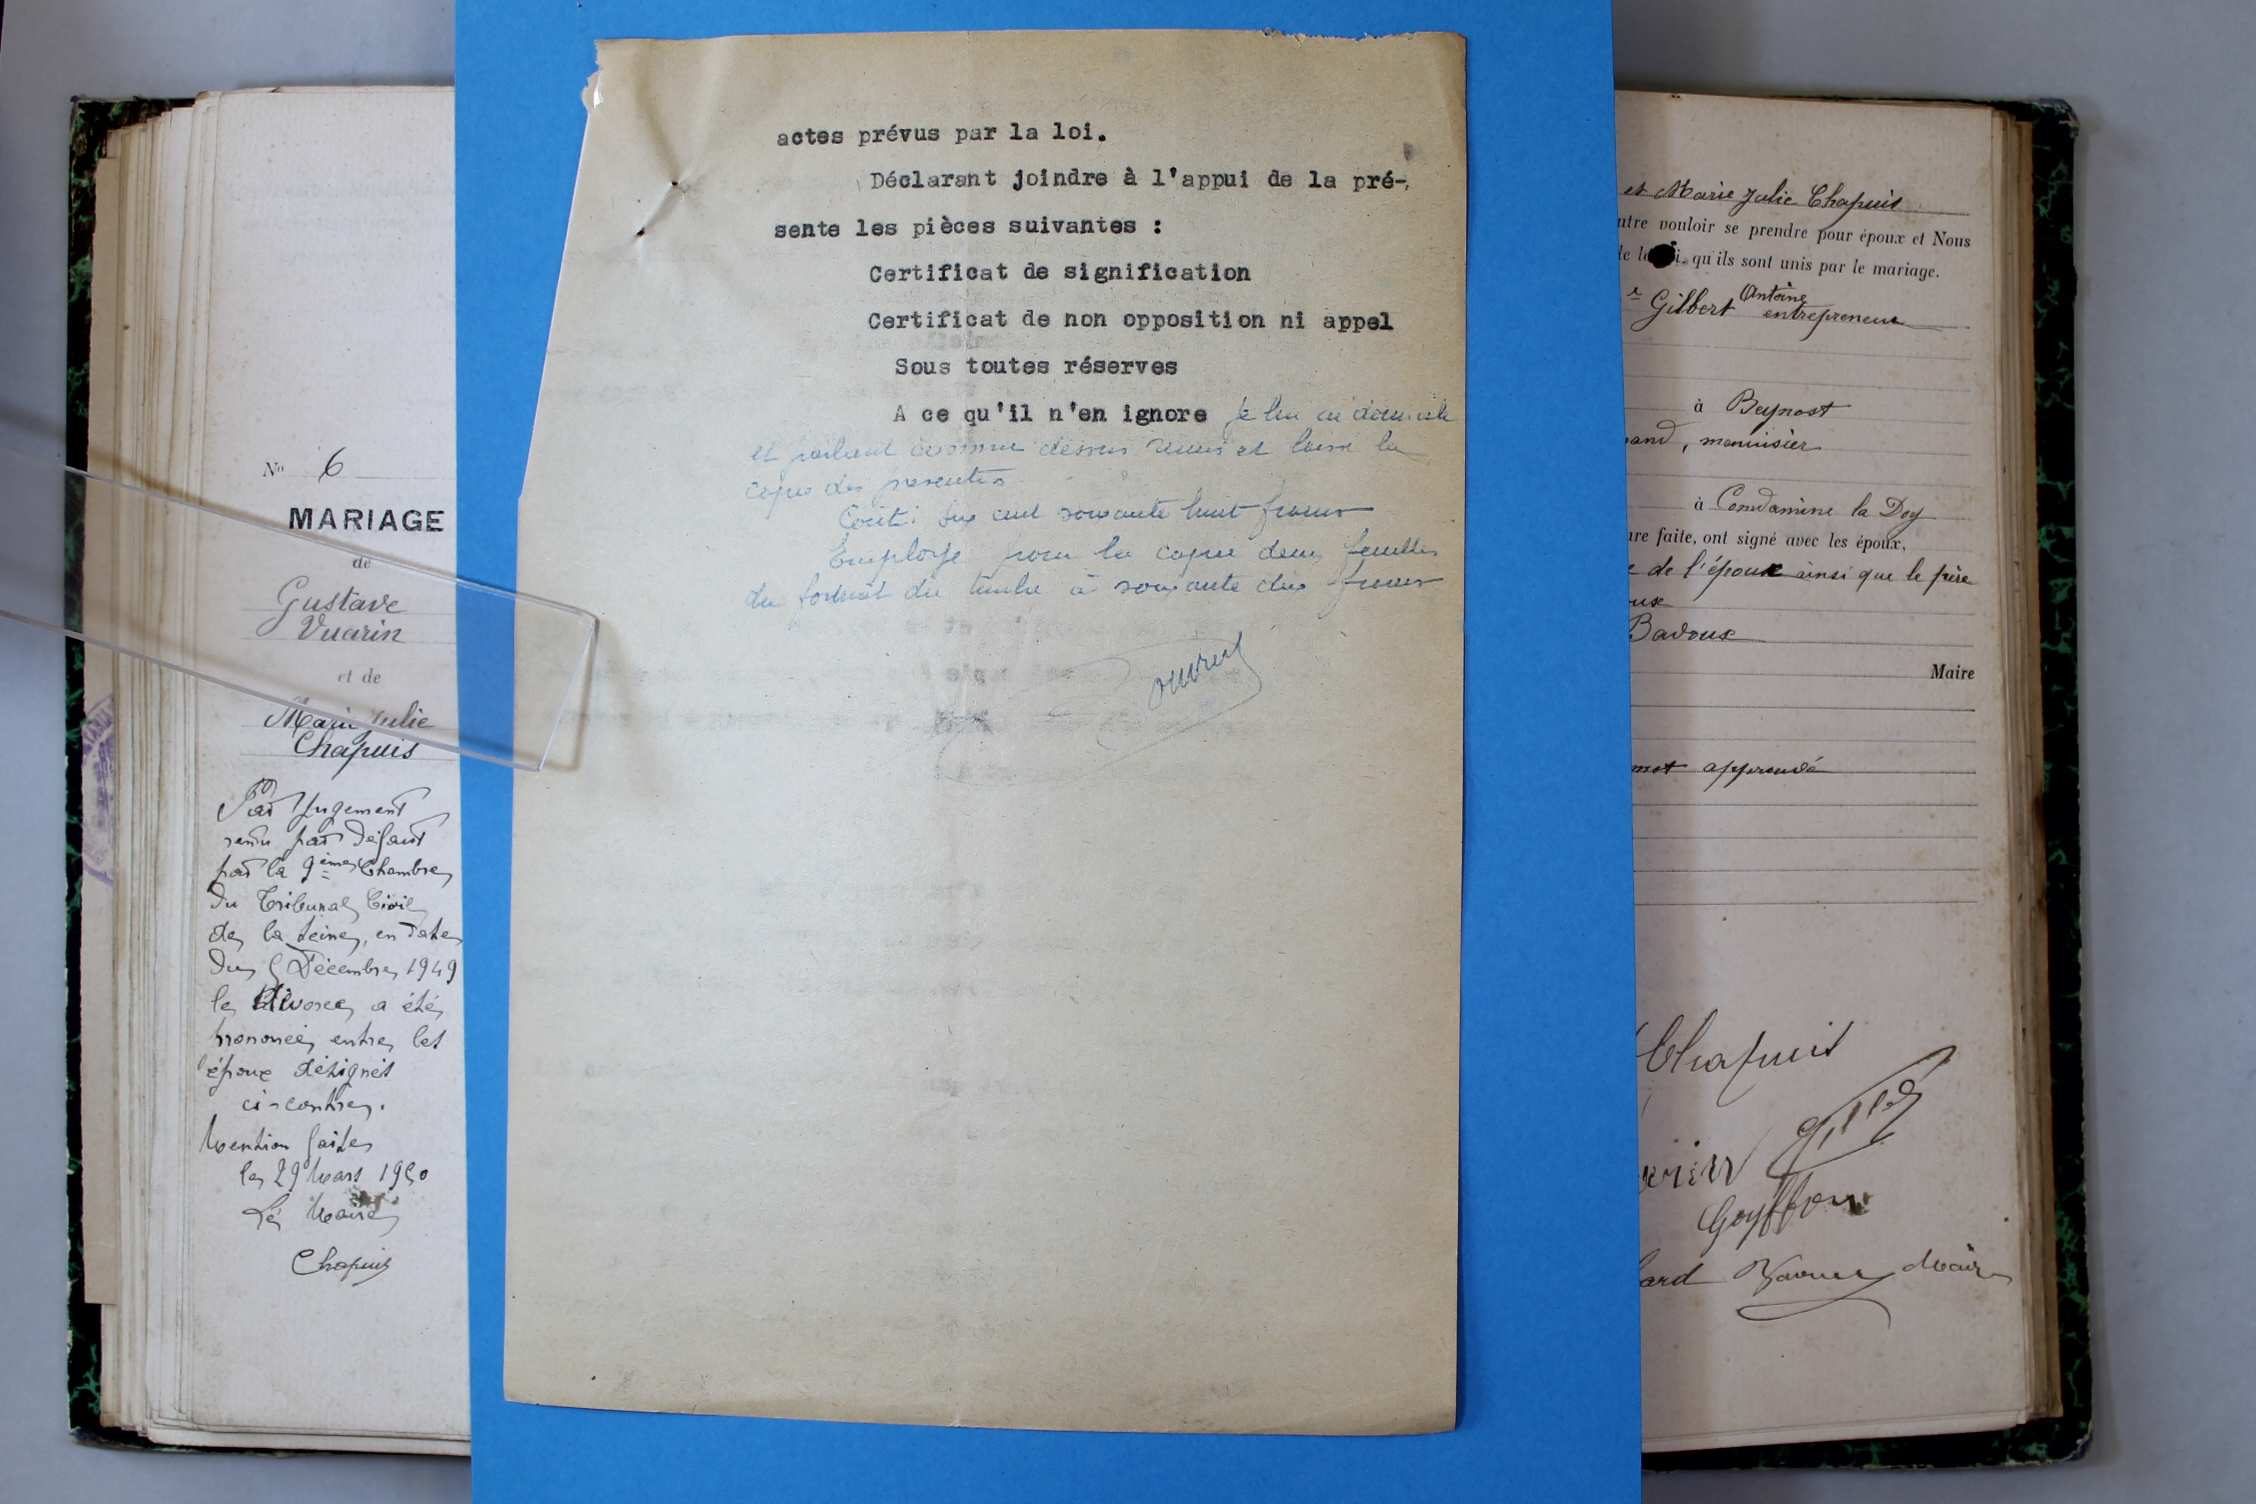 Nº 6
MARIAGE
de
Gustave
Vuarin
et de
Marie Julie
Chapuis
Par Jugement
rendu par défaut
par la 9ème Chambre
du Tribunal Civil
de la Seine, en date
du 5 Décembre 1949
le divorce a été
prononcé entre les
époux désignés
ci-contre.
Mention faite
le 29 Mars 1950
Le Maire
Chapuis
actes prévus par la loi.
Déclarant joindre à l'appui de la pré-
sente les pièces suivantes :
Certificat de signification
Certificat de non opposition ni appel
Sous toutes réserves
A ce qu'il n'en ignore Je lui ai domicile
et parlant comme dessus remis et laissé la
copie des présentes
Coût : six cent soixante huit francs
Employé pour la copie deux feuilles
du format du timbre à soixante dix francs
et Marie Julie Chapuis
utre vouloir se prendre pour époux et Nous
de la loi, qu'ils sont unis par le mariage.
Gilbert Antoine
entrepreneur
à Beynost
and, menuisier
à Condamine la Doy
ure faite, ont signé avec les époux,
de l'époux ainsi que le père
oux
Badoux
Maire
mot approuvé
Chapuis
Goyffon
ard
Maire